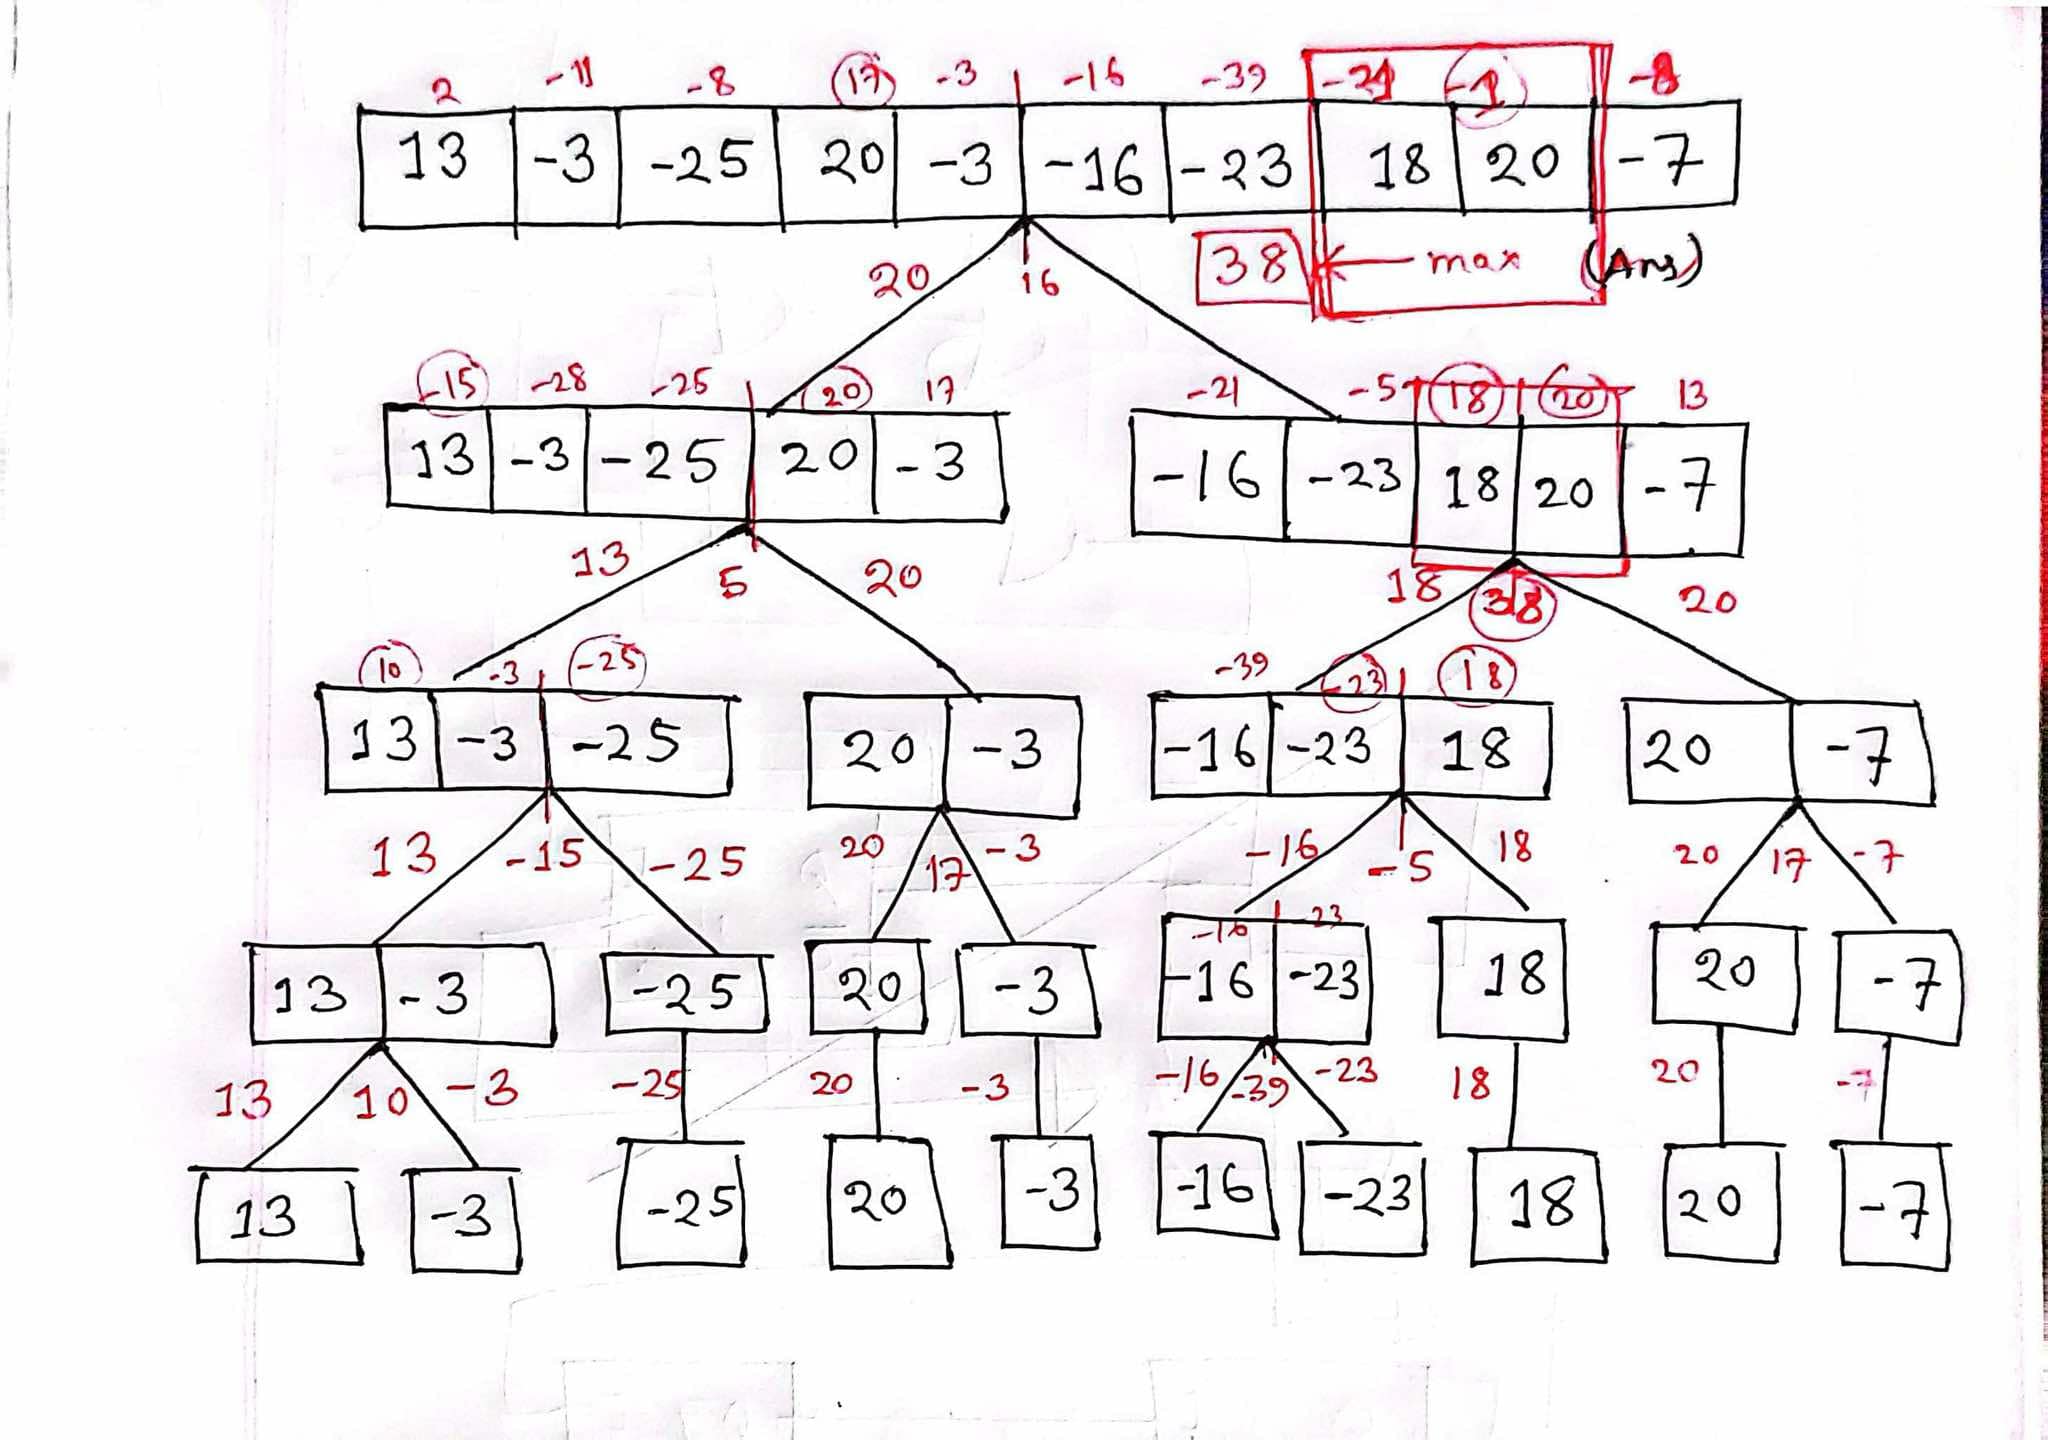 2 -11 -8 17 -3 -16 -39 -21 -1 -8
13 -3 -25 20 -3 -16 -23 18 20 -7
20 16 38 max (Ans)
-15 -28 -25 20 17 -21 -5 18 20 13
13 -3 -25 20 -3 -16 -23 18 20 -7
13 5 20 18 38 20
10 -3 -25 -39 -23 18
13 -3 -25 20 -3 -16 -23 18 20 -7
13 -15 -25 20 17 -3 -16 -5 18 20 17 -7
-16 -23
13 -3 -25 20 -3 -16 -23 18 20 -7
13 10 -3 -25 20 -3 -16 -39 -23 18 20 -7
13 -3 -25 20 -3 -16 -23 18 20 -7